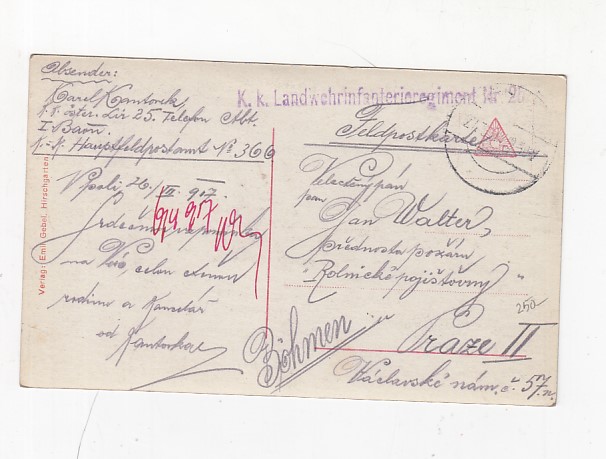 Absender:
Karel Kantorek
k. k. öster. Lir 25. Telefon Abt.
I Baon.
K.-K. Hauptfeldpostamt № 366
K. k. Landwehrinfanterieregiment Nr. 25
Feldpostkarte
V poli, 26. VII. 917.
Srdečnou
na Vás, celou ctěnou
rodinu a Kancelář
od
Kantorka
9/4 917
Velectěný pán
pan
Jan Walter,
přednosta požáru
"Rolnické pojišťovny"
v
Praze II
Václavské nám. č. 57. n.
Böhmen
250-
Verlag: Emil Gebel, Hirschgarten